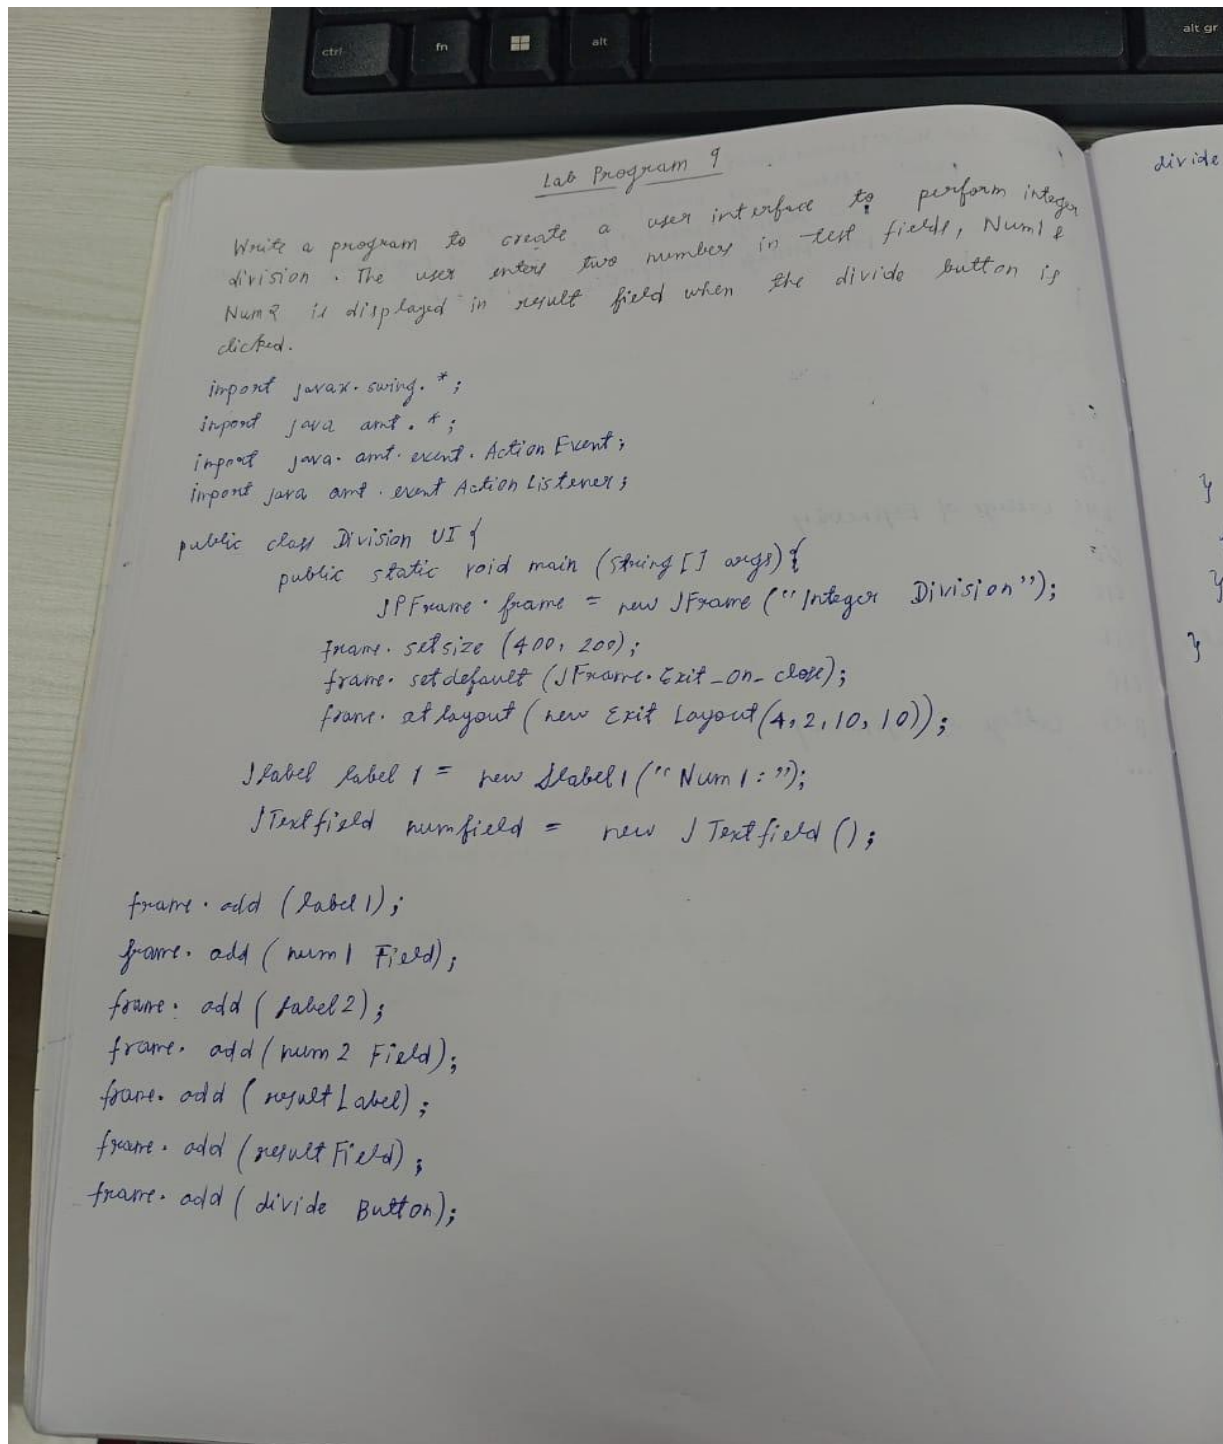 ctrl
fn
alt
alt gr
Lab Program 9
Write a program to create a user interface to perform integer
division. The user enters two numbers in text fields, Num1 &
Num2 is displayed in result field when the divide button is
clicked.
import javax.swing.*;
import java amt.*;
import java.amt.event.Action Event;
import java amt.event Action Listener;
public class Division UI {
public static void main (String [] args) {
JPFrame.frame = new JFrame ("Integer Division");
frame.setsize (400, 200);
frame.setdefault (JFrame.Exit_on_close);
frame.at layout (new Exit Layout (4, 2, 10, 10));
Jlabel label 1 = new Jlabel1 ("Num 1:");
JTextfield numfield = new J Textfield ();
frame.add (label1);
frame.add (num1 Field);
frame.add (label2);
frame.add (num2 Field);
frame.add (resultLabel);
frame.add (resultField);
frame.add (divide Button);
divide
}
}
}